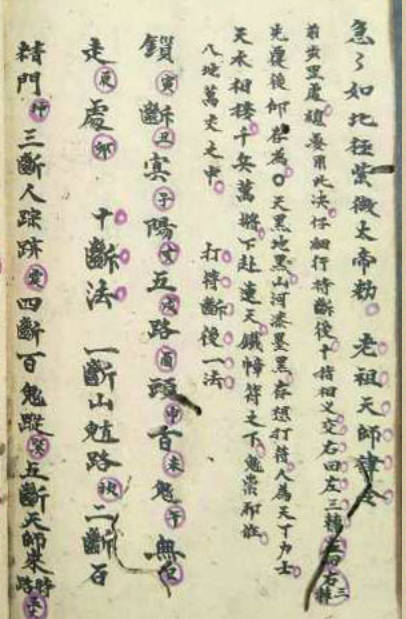 急〻如北極紫微大帝勅　老祖天師律令
前出罡處　用此決仔細行符斷後十指相义交右回左三轉左回右轉三
先覆後仰　為〇天黑地黑山河漆墨黑存想打符人為天丁力士
天衣相樓千兵萬將下赴速天鐵幛符之下鬼祟邪
八地萬丈之中　打符斷後一法
鎖寅斷丑寞子陽亥五戌路酉頭申百未鬼午無巳
走辰處卯　十斷法　一斷山魈路　二斷石
精門　三斷人踪跡　四斷百鬼蹤　五斷天師來時路